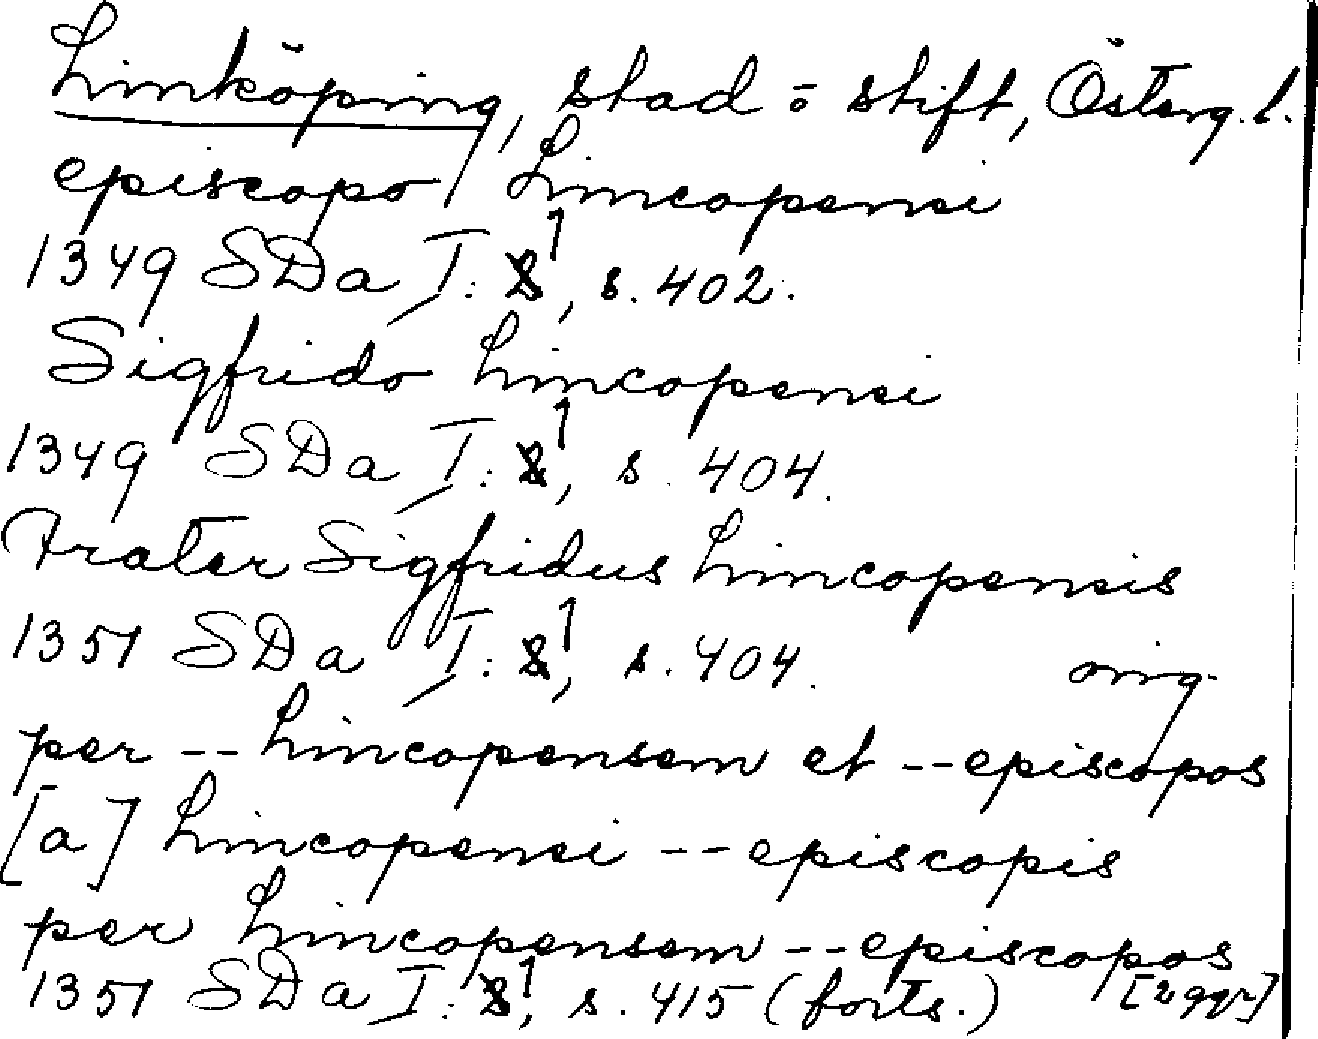 Linköping, stad o stift, Österg. l.
episcopo Lincopensi
1349 SDa I: 1, s. 402.
Sigfrido Lincopensi
1349 SDa I: 1, s. 404.
Frater Sigfridus Lincopensis
1351 SDa I: 1, s. 404. orig.
per -- Lincopensem et -- episcopos
[a] Lincopensi -- episcopis
per Lincopensem -- episcopos
1351 SDa I: 1, s. 415 (forts.) [2 ggr]